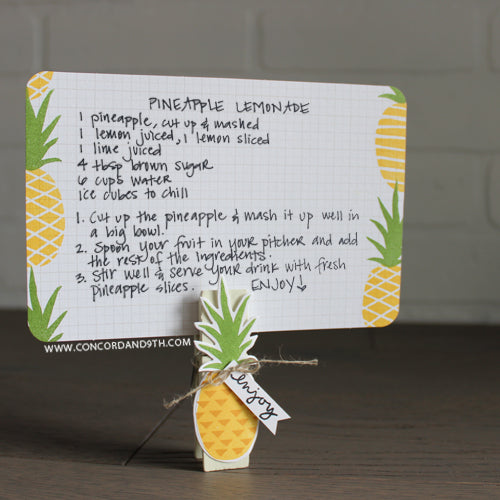 PINEAPPLE LEMONADE
1 pineapple, cut up & mashed
1 lemon juiced, 1 lemon sliced
1 lime juiced
4 tbsp brown sugar
6 cups water
ice cubes to chill
1. Cut up the pineapple & mash it up well in
a big bowl.
2. Spoon your fruit in your pitcher and add
the rest of the ingredients.
3. Stir well & serve your drink with fresh
pineapple slices. ENJOY!
WWW.CONCORDAND9TH.COM
enjoy